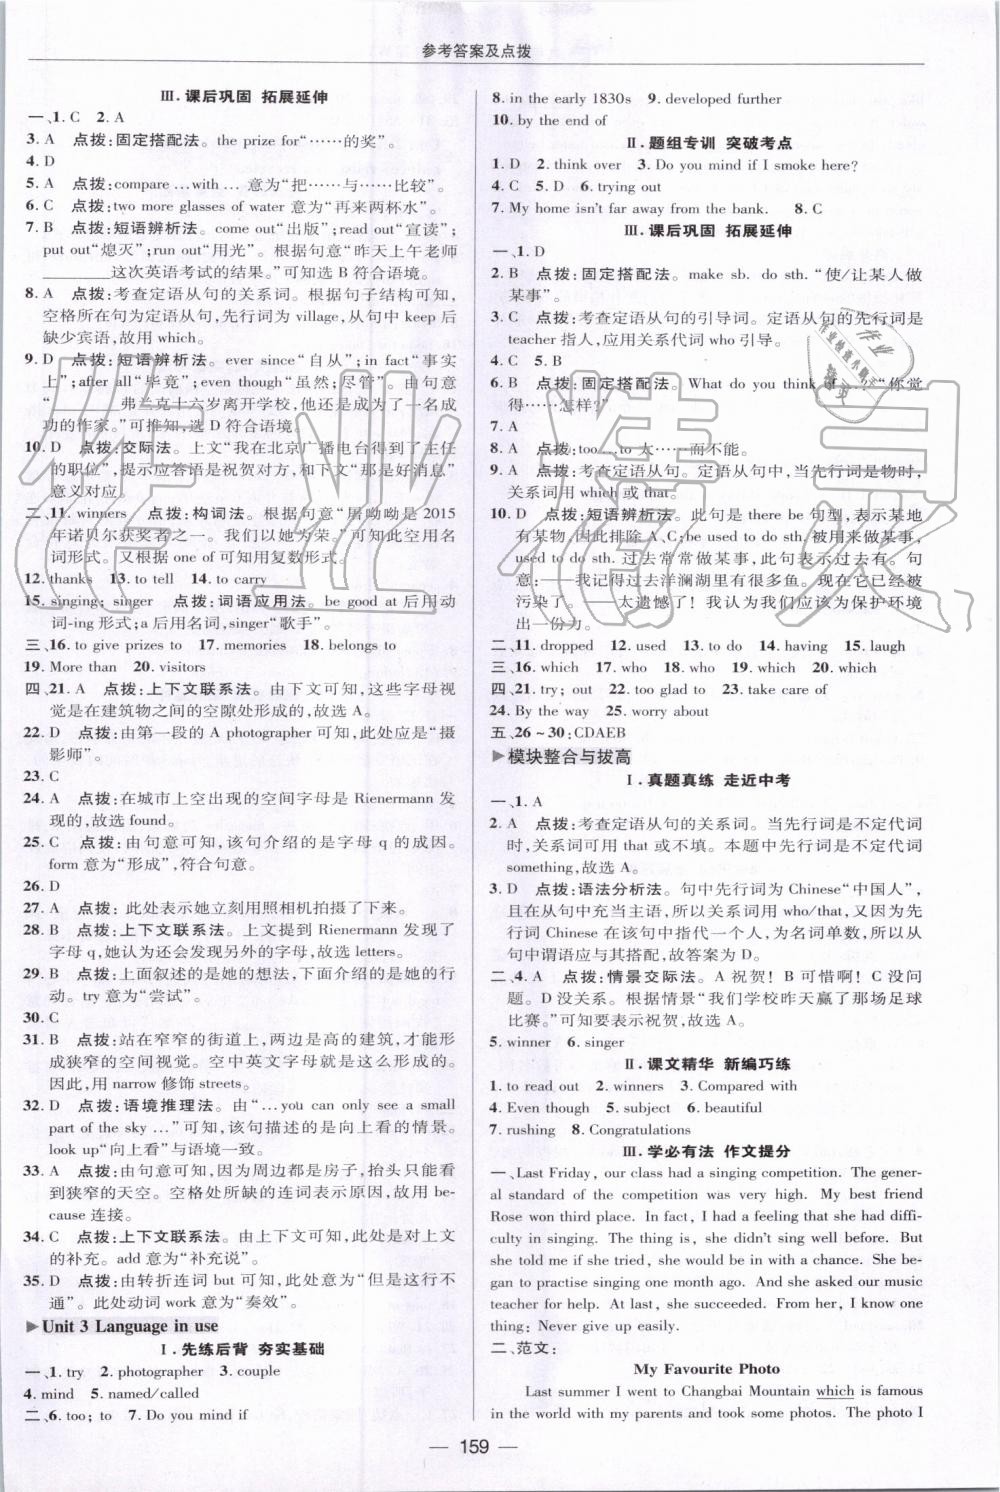 参考答案及点拨
Ⅲ.课后巩固 拓展延伸
一、1. C 2. A
3. A 点拨:固定搭配法。the prize for“……的奖”。
4. D
5. A 点拨:compare …with … 意为“把……与……比较”。
6. C 点拨:two more glasses of water 意为“再来两杯水”。
7. B 点拨:短语辨析法。come out“出版”;read out“宣读”;
put out“熄灭”;run out“用光”。根据句意“昨天上午老师
________这次英语考试的结果。”可知选 B 符合语境。
8. A 点拨:考查定语从句的关系词。根据句子结构可知,
空格所在句为定语从句,先行词为 village,从句中 keep 后
缺少宾语,故用 which。
9. D 点拨:短语辨析法。ever since“自从”;in fact“事实
上”;after all“毕竟”;even though“虽然;尽管”。由句意
“________弗兰克十六岁离开学校,他还是成为了一名成
功的作家。”可推知,选 D 符合语境。
10. D 点拨:交际法。上文“我在北京广播电台得到了主任
的职位”,提示应答语是祝贺对方,和下文“那是好消息”
意义对应。
二、11. winners 点拨:构词法。根据句意“屠呦呦是 2015
年诺贝尔获奖者之一。我们以她为荣。”可知此空用名
词形式。又根据 one of 可知用复数形式。
12. thanks 13. to tell 14. to carry
15. singing; singer 点拨:词语应用法。be good at 后用动
词-ing 形式;a 后用名词,singer“歌手”。
三、16. to give prizes to 17. memories 18. belongs to
19. More than 20. visitors
四、21. A 点拨:上下文联系法。由下文可知,这些字母视
觉是在建筑物之间的空隙处形成的,故选 A。
22. D 点拨:由第一段的 A photographer 可知,此处应是“摄
影师”。
23. C
24. A 点拨:在城市上空出现的空间字母是 Rienermann 发
现的,故选 found。
25. C 点拨:由句意可知,该句介绍的是字母 q 的成因。
form 意为“形成”,符合句意。
26. D
27. A 点拨:此处表示她立刻用照相机拍摄了下来。
28. B 点拨:上下文联系法。上文提到 Rienermann 发现了
字母 q,她认为还会发现另外的字母,故选 letters。
29. B 点拨:上面叙述的是她的想法,下面介绍的是她的行
动。try 意为“尝试”。
30. C
31. B 点拨:站在窄窄的街道上,两边是高的建筑,才能形
成狭窄的空间视觉。空中英文字母就是这么形成的。
因此,用 narrow 修饰 streets。
32. D 点拨:语境推理法。由“…you can only see a small
part of the sky …”可知,该句描述的是向上看的情景。
look up“向上看”与语境一致。
33. A 点拨:由句意可知,因为周边都是房子,抬头只能看
到狭窄的天空。空格处所缺的连词表示原因,故用 be-
cause 连接。
34. C 点拨:上下文联系法。由上文可知,此处是对上文
的补充。add 意为“补充说”。
35. D 点拨:由转折连词 but 可知,此处意为“但是这行不
通”。此处动词 work 意为“奏效”。
Unit 3 Language in use
Ⅰ.先练后背 夯实基础
一、1. try 2. photographer 3. couple
4. mind 5. named/called
二、6. too; to 7. Do you mind if
8. in the early 1830s 9. developed further
10. by the end of
Ⅱ.题组专训 突破考点
1. D 2. think over 3. Do you mind if I smoke here?
4. C 5. D 6. trying out
7. My home isn't far away from the bank. 8. C
Ⅲ.课后巩固 拓展延伸
一、1. D
2. B 点拨:固定搭配法。make sb. do sth. “使/让某人做
某事”。
3. C 点拨:考查定语从句的引导词。定语从句的先行词是
teacher 指人,应用关系代词 who 引导。
4. C 5. B
6. B 点拨:固定搭配法。What do you think of …?“你觉
得……怎样?”
7. A
8. A 点拨:too…to 太……而不能。
9. A 点拨:考查定语从句。定语从句中,当先行词是物时,
关系词用 which 或 that。
10. D 点拨:短语辨析法。此句是 there be 句型,表示某地
有某物,因此排除 A、C;be used to do sth. 被用来做某事,
used to do sth. 过去常常做某事,此句表示过去有。句
意:——我记得过去洋澜湖里有很多鱼。现在它已经被
污染了。——太遗憾了!我认为我们应该为保护环境
出一份力。
二、11. dropped 12. used 13. to do 14. having 15. laugh
三、16. which 17. who 18. who 19. which 20. which
四、21. try; out 22. too glad to 23. take care of
24. By the way 25. worry about
五、26 ~ 30:CDAEB
模块整合与拔高
Ⅰ.真题真练 走近中考
一、1. A
2. A 点拨:考查定语从句的关系词。当先行词是不定代词
时,关系词可用 that 或不填。本题中先行词是不定代词
something,故选 A。
3. D 点拨:语法分析法。句中先行词为 Chinese“中国人”,
且在从句中充当主语,所以关系词用 who/that,又因为先
行词 Chinese 在该句中指代一个人,为名词单数,所以从
句中谓语应与其搭配,故答案为 D。
二、4. A 点拨:情景交际法。A 祝贺!B 可惜啊!C 没问
题。D 没关系。根据情景“我们学校昨天赢了那场足球
比赛。”可知应表示祝贺,故选 A。
5. winner 6. singer
Ⅱ.课文精华 新编巧练
1. to read out 2. winners 3. Compared with
4. Even though 5. subject 6. beautiful
7. rushing 8. Congratulations
Ⅲ.学必有法 作文提分
一、Last Friday, our class had a singing competition. The gener-
al standard of the competition was very high. My best friend
Rose won third place. In fact, I had a feeling that she had diffi-
culty in singing. The thing is, she didn't sing well before. But
she told me if she tried, she would be in with a chance. She be-
gan to practise singing one month ago. And she asked our music
teacher for help. At last, she succeeded. From her, I know one
thing: Never give up easily.
二、范文:
My Favourite Photo
Last summer I went to Changbai Mountain which is famous
in the world with my parents and took some photos. The photo I
159
作业精灵